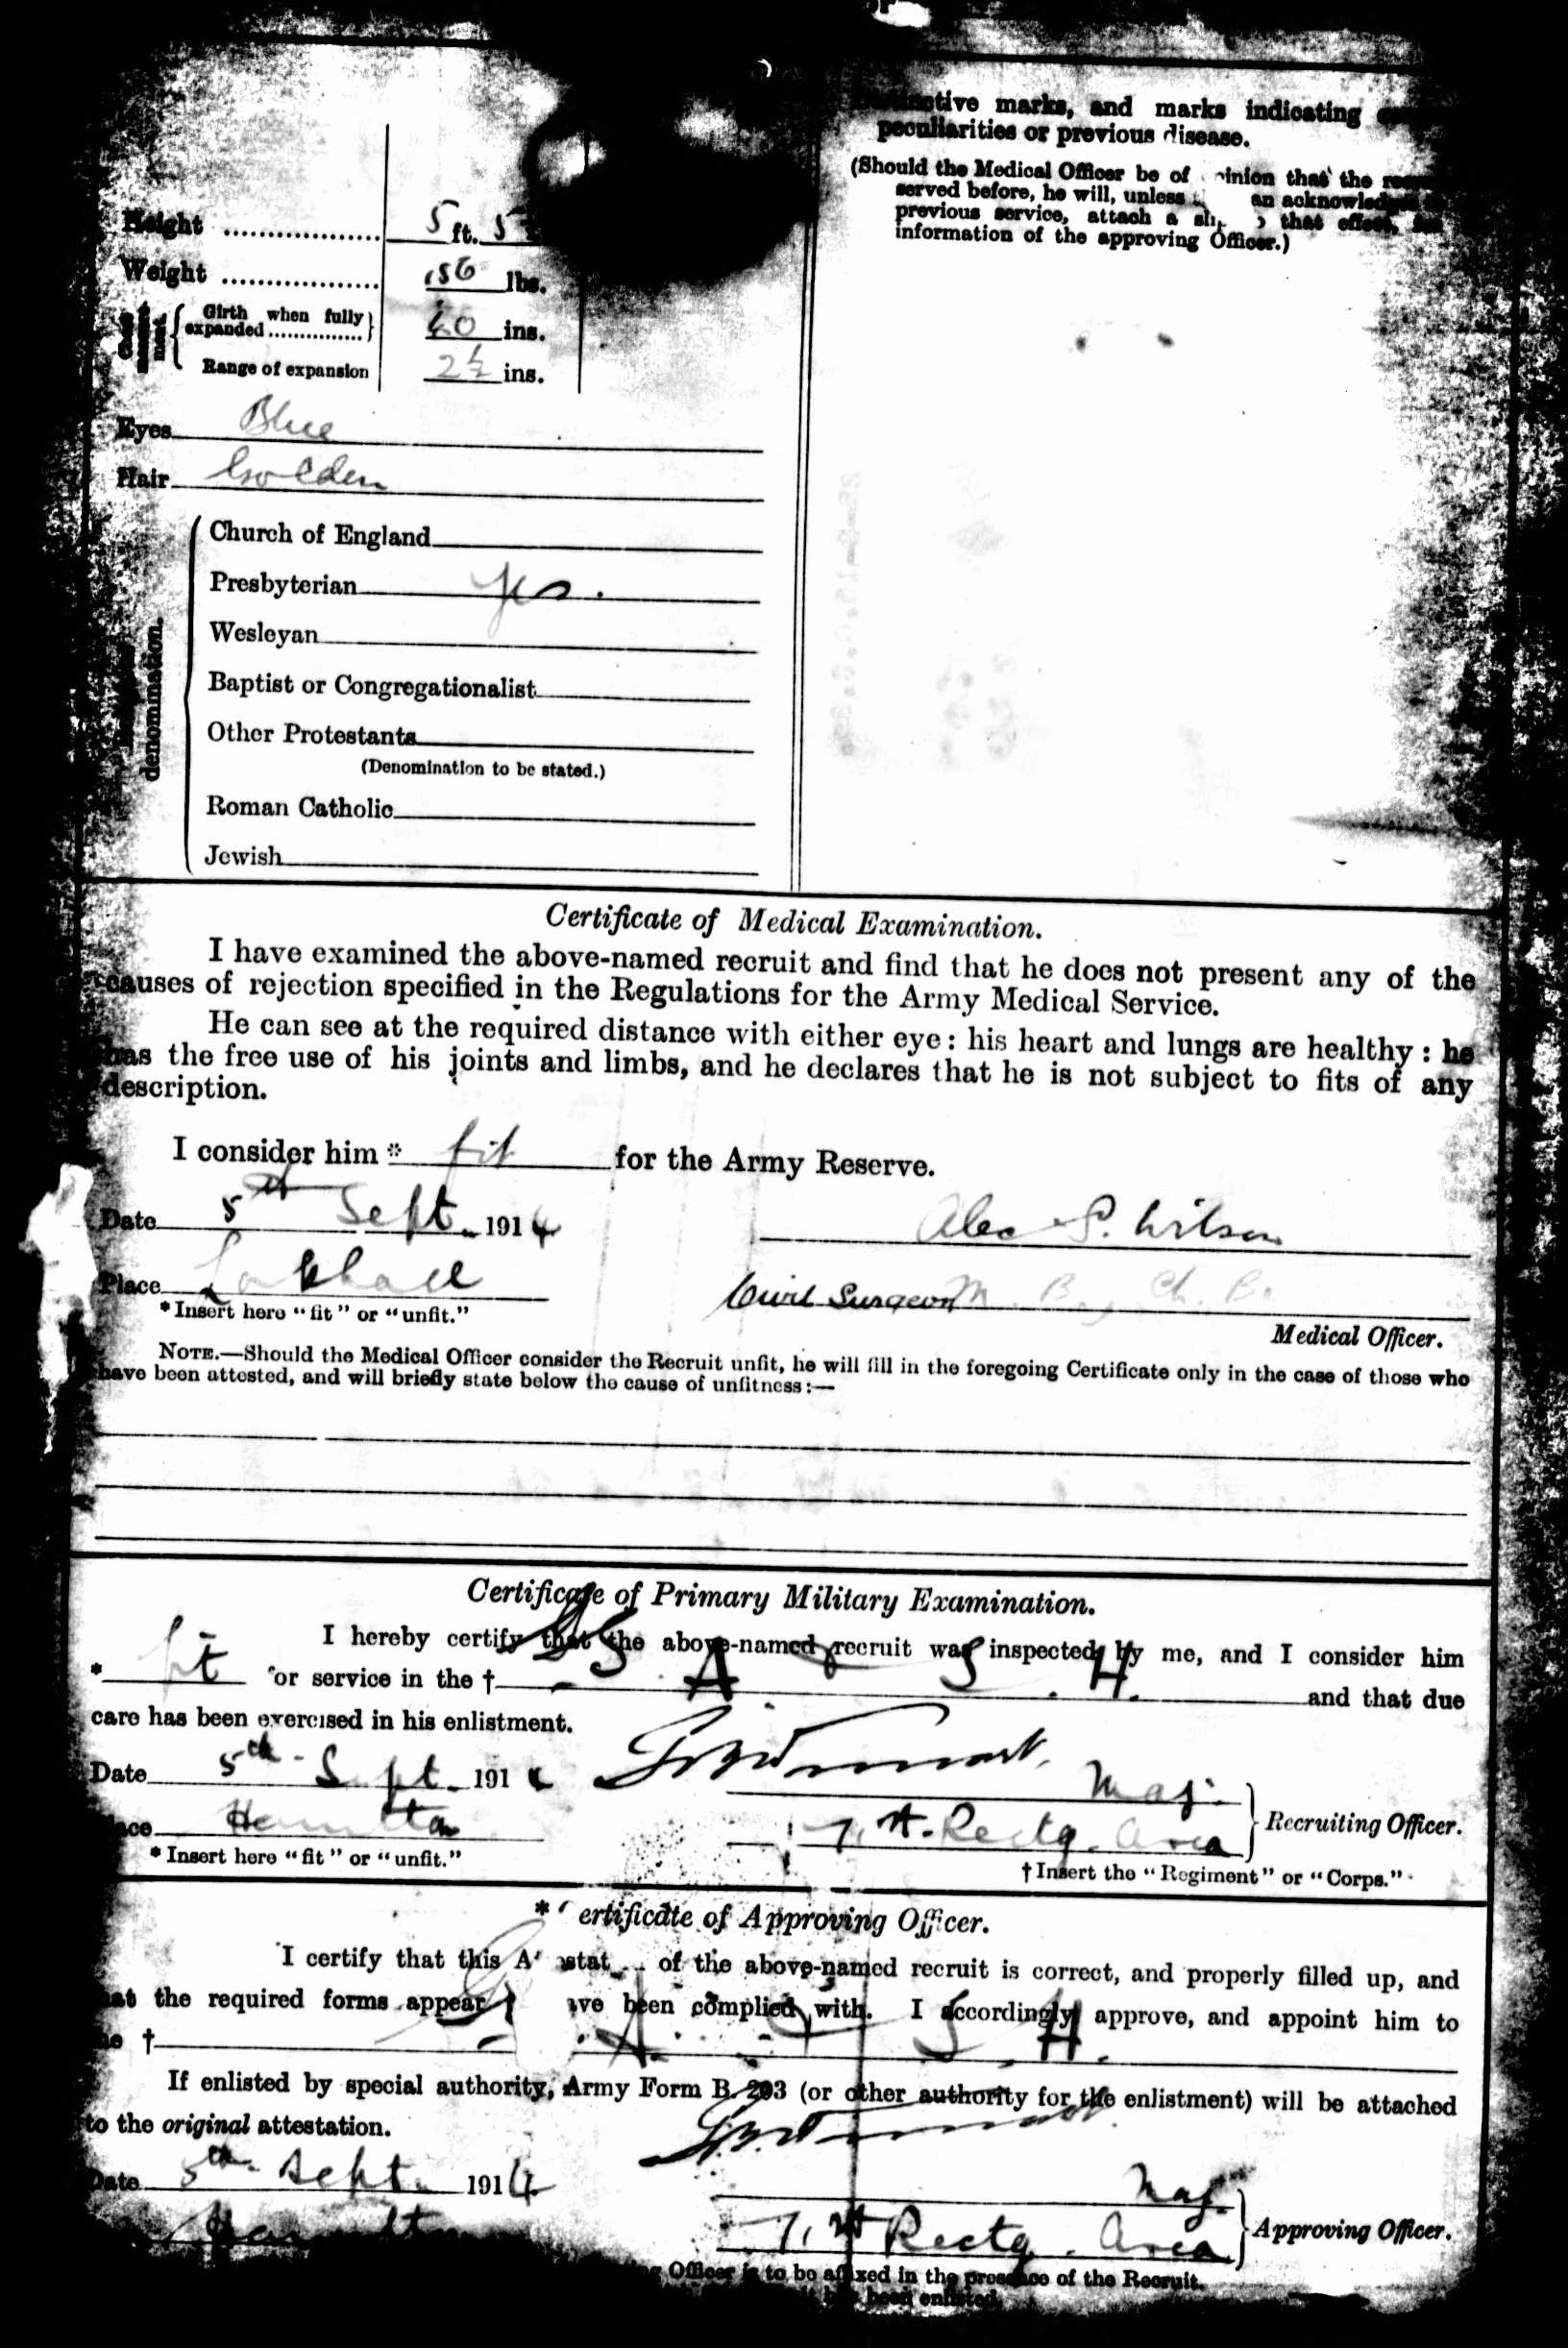 marks, and marks indicating
peculiarities or previous disease.
(Should the Medical Officer be of that the
served before, he will, unless an
previous service, attach a that effect,
information of the approving Officer.)
Height 5 ft. 5
Weight 156 lbs.
Girth when fully
expanded 40 ins.
Range of expansion 2½ ins.
Eyes Blue
Hair Golden
denomination.
Church of England
Presbyterian Yes.
Wesleyan
Baptist or Congregationalist
Other Protestants
(Denomination to be stated.)
Roman Catholic
Jewish
Certificate of Medical Examination.
I have examined the above-named recruit and find that he does not present any of the
causes of rejection specified in the Regulations for the Army Medical Service.
He can see at the required distance with either eye: his heart and lungs are healthy: he
has the free use of his joints and limbs, and he declares that he is not subject to fits of any
description.
I consider him * fit for the Army Reserve.
Date 5th Sept. 1914 Alex S. Wilson
Place Larkhall Civil Surgeon M.B., Ch.B.
* Insert here "fit" or "unfit."
Medical Officer.
NOTE.—Should the Medical Officer consider the Recruit unfit, he will fill in the foregoing Certificate only in the case of those who
have been attested, and will briefly state below the cause of unfitness:—
Certificate of Primary Military Examination.
I hereby certify that the above-named recruit was inspected by me, and I consider him
* fit for service in the † A & S. H. and that due
care has been exercised in his enlistment.
Date 5th Sept. 191
Maj.
Place Hamilton 71st Rectg. Area Recruiting Officer.
* Insert here "fit" or "unfit."
† Insert the "Regiment" or "Corps."
* Certificate of Approving Officer.
I certify that this of the above-named recruit is correct, and properly filled up, and
the required forms appear been complied with. I accordingly approve, and appoint him to
† A. & S. H.
If enlisted by special authority, Army Form B. 203 (or other authority for the enlistment) will be attached
to the original attestation.
Date 5th Sept. 1914
Maj.
Hamilton 71st Rectg. Area Approving Officer.
Officer is to be affixed in the presence of the Recruit.
been enlisted